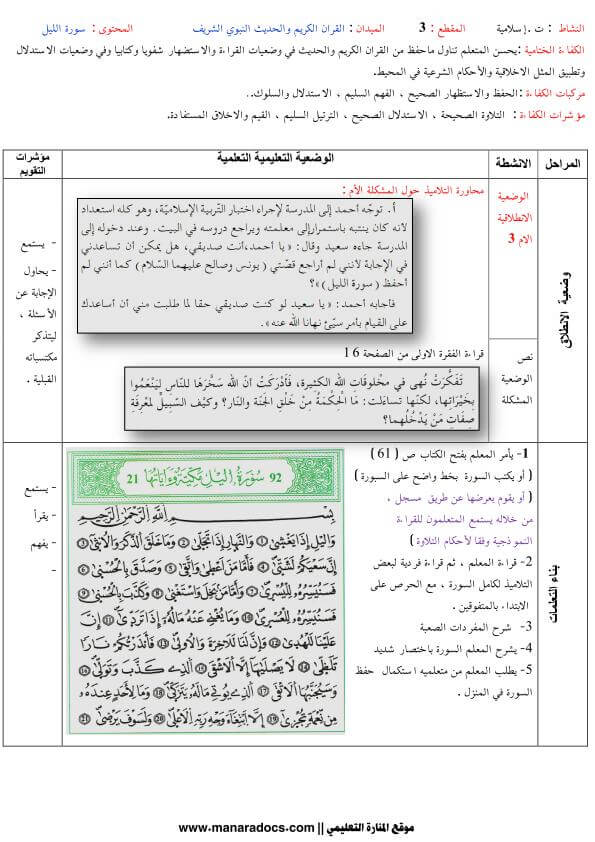 النشاط : ت .إسلامية المقطع : 3 الميدان : القران الكريم والحديث النبوي الشريف المحتوى : سورة الليل
الكفاءة الختامية :يحسن المتعلم تناول ماحفظ من القران الكريم والحديث في وضعيات القراءة والاستضهار شفويا وكتابيا وفي وضعيات الاستدلال
وتطبيق المثل الاخلاقية والأحكام الشرعية في المحيط.
مركبات الكفاءة :الحفظ والاستظهار الصحيح ، الفهم السليم ، الاستدلال والسلوك..
مؤشرات الكفاءة : التلاوة الصحيحة ، الاستدلال الصحيح ، الترتيل السليم ، القيم والاخلاق المستفادة.
المراحل الانشطة الوضعية التعليمية التعلمية مؤشرات التقويم
وضعية الانطلاق
الوضعية
الانطلاقية
الام 3
محاورة التلاميذ حول المشكلة الأم :
أ. توجّه أحمد إلى المدرسة لإجراء اختبار التّربية الإسلاميّة، وهو كله استعداد
لأنه كان ينتبه باستمرارإلى معلمته ويراجع دروسه في البيت. وعند دخوله إلى
المدرسة جاءه سعيد وقال: « يا أحمد،أنت صديقي، هل يمكن أن تساعدني
في الإجابة لأنني لم أراجع قصّتي ( يونس وصالح عليهما السّلام) كما أنني لم
أحفظ (سورة الليل)»؟
فأجابه أحمد: « يا سعيد لو كنت صديقي حقا لما طلبت مني أن أساعدك
على القيام بأمر سيّئ نهانا الله عنه».
- يستمع
- يحاول
الإجابة عن
الأسئلة ،
ليتذكر
مكتسباته
القبلية .
نص
الوضعية
المشكلة
قراءة الفقرة الاولى من الصفحة 16
تَفَكَّرَتْ نُهى في مَخْلوقاتِ اللّه الكثيرة، فَأَدْرَكَتْ انّ اللّه سَخَّرَهَا للنّاسِ لِيَنْعَمُوا
بِخَيْرَاتِهَا، لكنّها تساءلت: مَا الْحِكْمَةُ مِنْ خَلْقِ الجَنّة والنّار؟ وكيْف السّبيلُ لمعْرِفَةِ
صِفَاتِ مَنْ يَدْخُلُهما؟
بناء التعلمات
1- يأمر المعلم بفتح الكتاب ص ( 61 )
( أو يكتب السورة بخط واضح على السبورة )
( أو يقوم بعرضها عن طريق مسجل ،
من خلاله يستمع المتعلمون للقراءة
النموذجية وفقا لأحكام التلاوة )
2- قراءة المعلم ، ثم قراءة لبعض
التلاميذ لكامل السورة ، مع الحرص على
الابتداء بالمتفوقين .
3- شرح المفردات الصعبة
4- يشرح المعلم السورة باختصار شديد
5- يطلب المعلم من متعلميه استكمال حفظ
السورة في المنزل .
92 سُورَةُ الّيلِ مَكِّيَّةٌ وَءَايَاتُهَا 21
بِسْمِ اللَّهِ الرَّحْمَنِ الرَّحِيمِ
وَالَّيْلِ إِذَا يَغْشَىٰ ① وَالنَّهَارِ إِذَا تَجَلَّىٰ ② وَمَا خَلَقَ الذَّكَرَ وَالْأُنثَىٰ ③
إِنَّ سَعْيَكُمْ لَشَتَّىٰ ④ فَأَمَّا مَنْ أَعْطَىٰ وَاتَّقَىٰ ⑤ وَصَدَّقَ بِالْحُسْنَىٰ ⑥
فَسَنُيَسِّرُهُ لِلْيُسْرَىٰ ⑦ وَأَمَّا مَنْ بَخِلَ وَاسْتَغْنَىٰ ⑧ وَكَذَّبَ بِالْحُسْنَىٰ ⑨
فَسَنُيَسِّرُهُ لِلْعُسْرَىٰ ⑩ وَمَا يُغْنِي عَنْهُ مَالُهُ إِذَا تَرَدَّىٰ ⑪ إِنَّ
عَلَيْنَا لَلْهُدَىٰ ⑫ وَإِنَّ لَنَا لَلْآخِرَةَ وَالْأُولَىٰ ⑬ فَأَنذَرْتُكُمْ نَارًا
تَلَظَّىٰ ⑭ لَا يَصْلَاهَا إِلَّا الْأَشْقَى ⑮ الَّذِي كَذَّبَ وَتَوَلَّىٰ ⑯
وَسَيُجَنَّبُهَا الْأَتْقَى ⑰ الَّذِي يُوتِي مَالَهُ يَتَزَكَّىٰ ⑱ وَمَا لِأَحَدٍ عِندَهُ
مِن نِّعْمَةٍ تُجْزَىٰ ⑲ إِلَّا ابْتِغَاءَ وَجْهِ رَبِّهِ الْأَعْلَىٰ ⑳ وَلَسَوْفَ يَرْضَىٰ ㉑
- يستمع
- يقرأ
- يفهم
-
موقع المنارة التعليمي || www.manaradocs.com